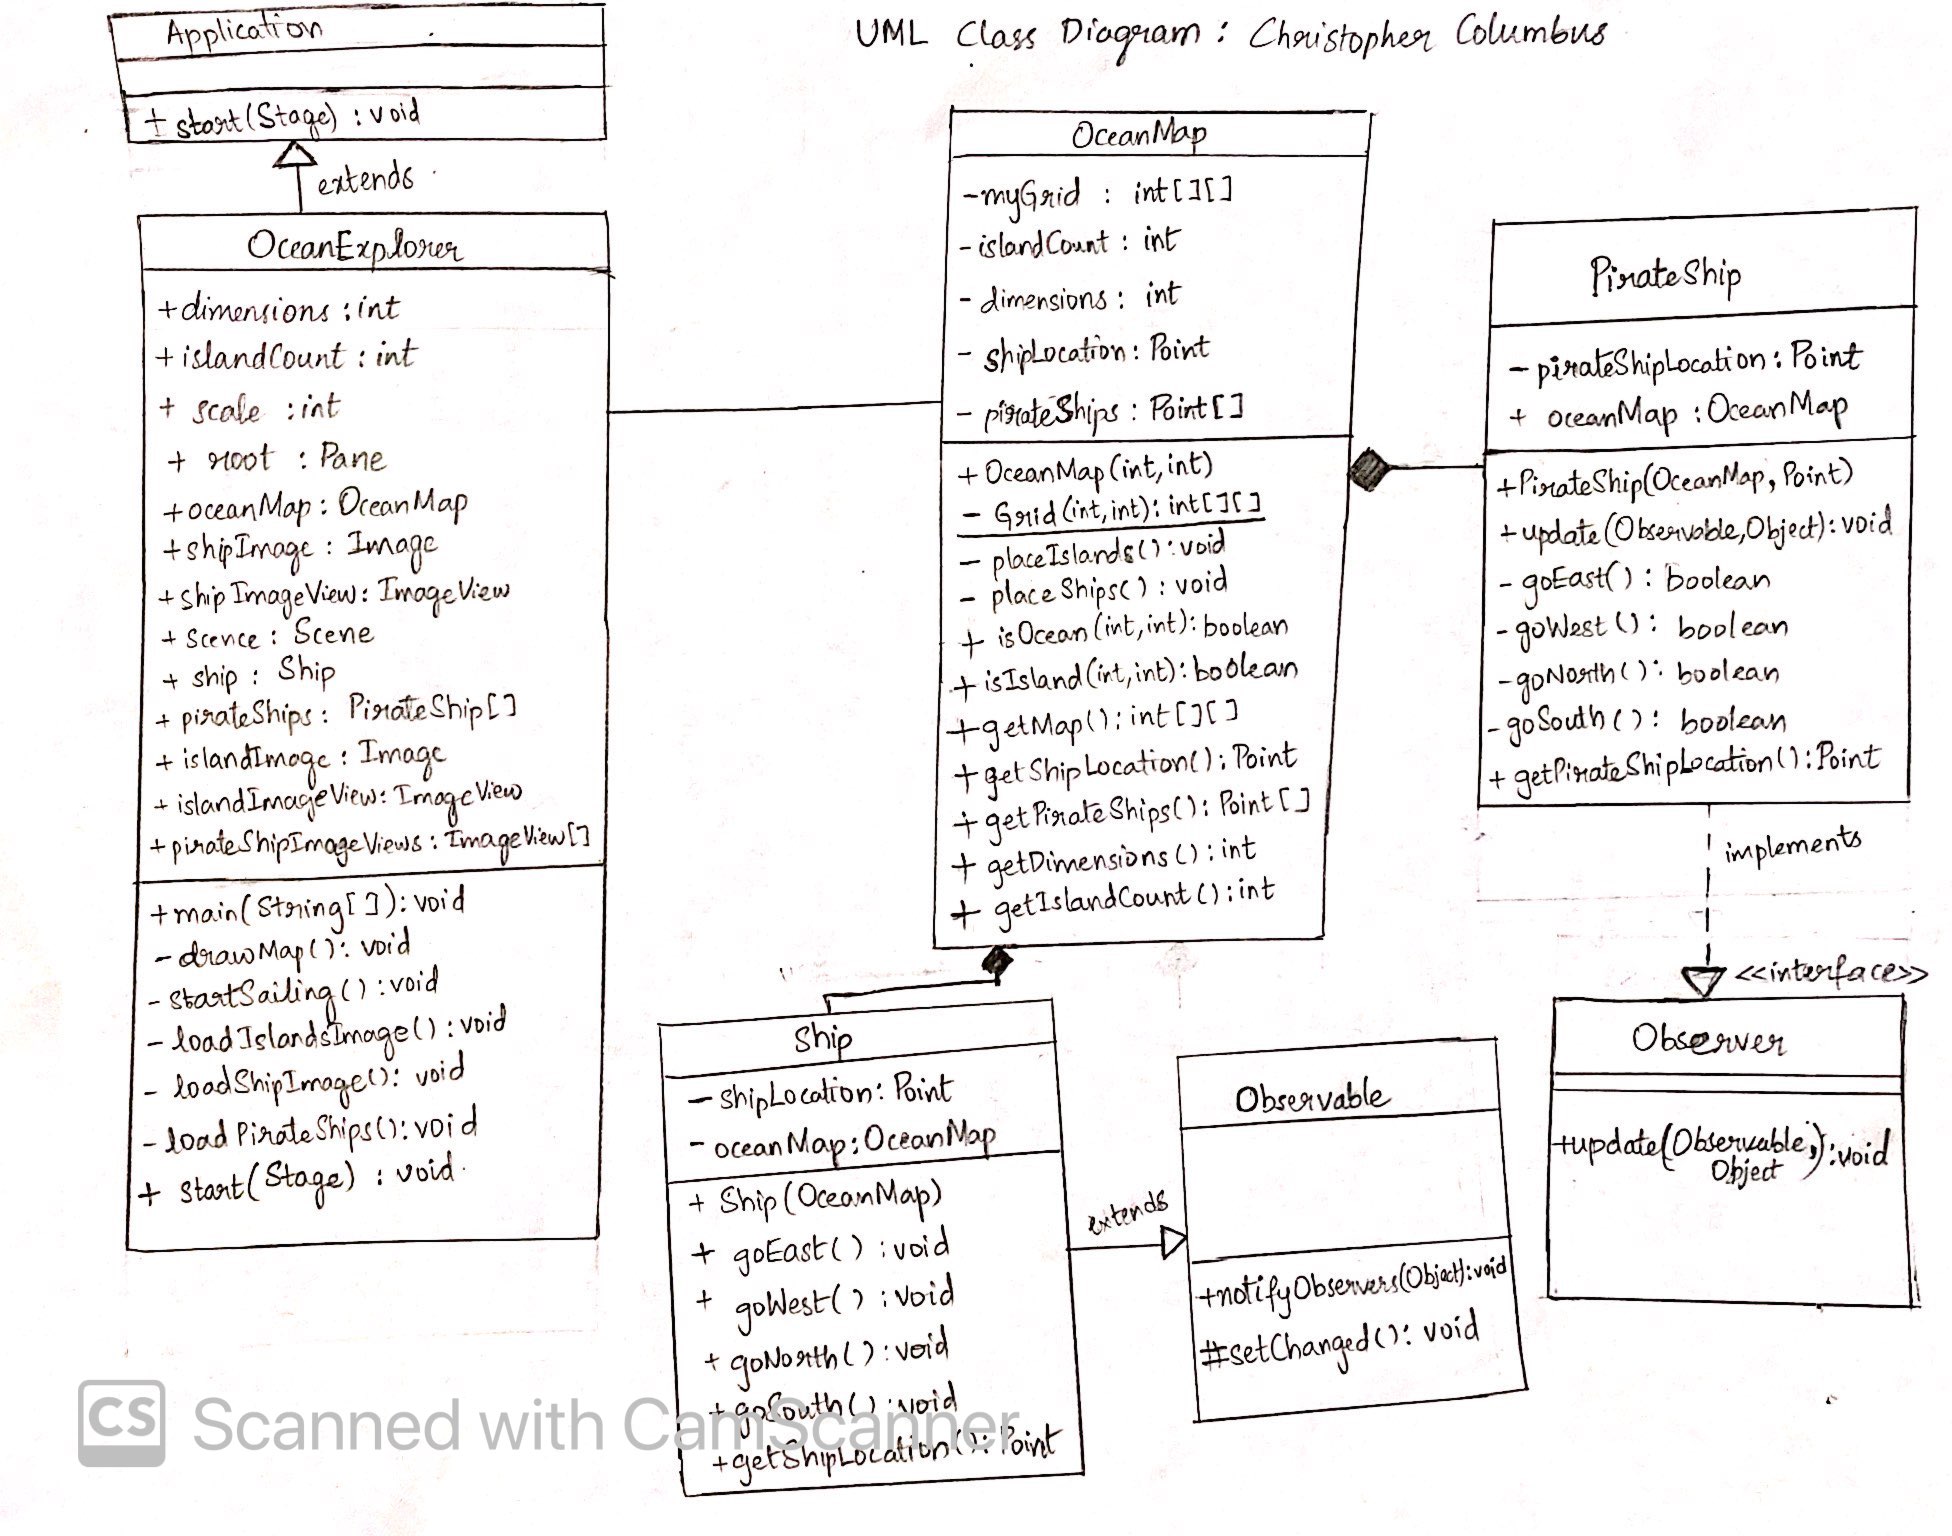 UML Class Diagram : Christopher Columbus
Application
+ start(Stage) : void
extends
OceanExplorer
+dimensions : int
+ islandCount : int
+ scale : int
+ root : Pane
+oceanMap : OceanMap
+shipImage : Image
+shipImageView : ImageView
+ scence : Scene
+ ship : Ship
+ pirateShips : PirateShip[]
+ islandImage : Image
+ islandImageView : ImageView
+pirateShipImageViews : ImageView[]
+main(String[]) : void
- drawMap() : void
- startSailing() : void
- loadIslandsImage() : void
- loadShipImage() : void
- loadPirateShips() : void
+ start(Stage) : void
OceanMap
-myGrid : int[][]
- islandCount : int
- dimensions : int
- shipLocation : Point
- pirateShips : Point[]
+ OceanMap(int,int)
- Grid(int,int) : int[][]
- placeIslands() : void
- placeShips() : void
+ isOcean(int,int) : boolean
+ isIsland(int,int) : boolean
+getMap() : int[][]
+ getShipLocation() : Point
+ getPirateShips() : Point[]
+ getDimensions() : int
+ getIslandCount() : int
PirateShip
- pirateShipLocation : Point
+ oceanMap : OceanMap
+PirateShip(OceanMap, Point)
+update(Observable,Object) : void
- goEast() : boolean
- goWest() : boolean
-goNorth() : boolean
-goSouth() : boolean
+ getPirateShipLocation() : Point
implements
<<interface>>
Observer
+update(Observable, Object) : void
Ship
- shipLocation : Point
- oceanMap : OceanMap
+ Ship(OceanMap)
+ goEast() : void
+ goWest() : void
+ goNorth() : void
+ goSouth() : void
+getShipLocation() : Point
extends
Observable
+notifyObservers(Object) : void
#setChanged() : void
CS Scanned with CamScanner